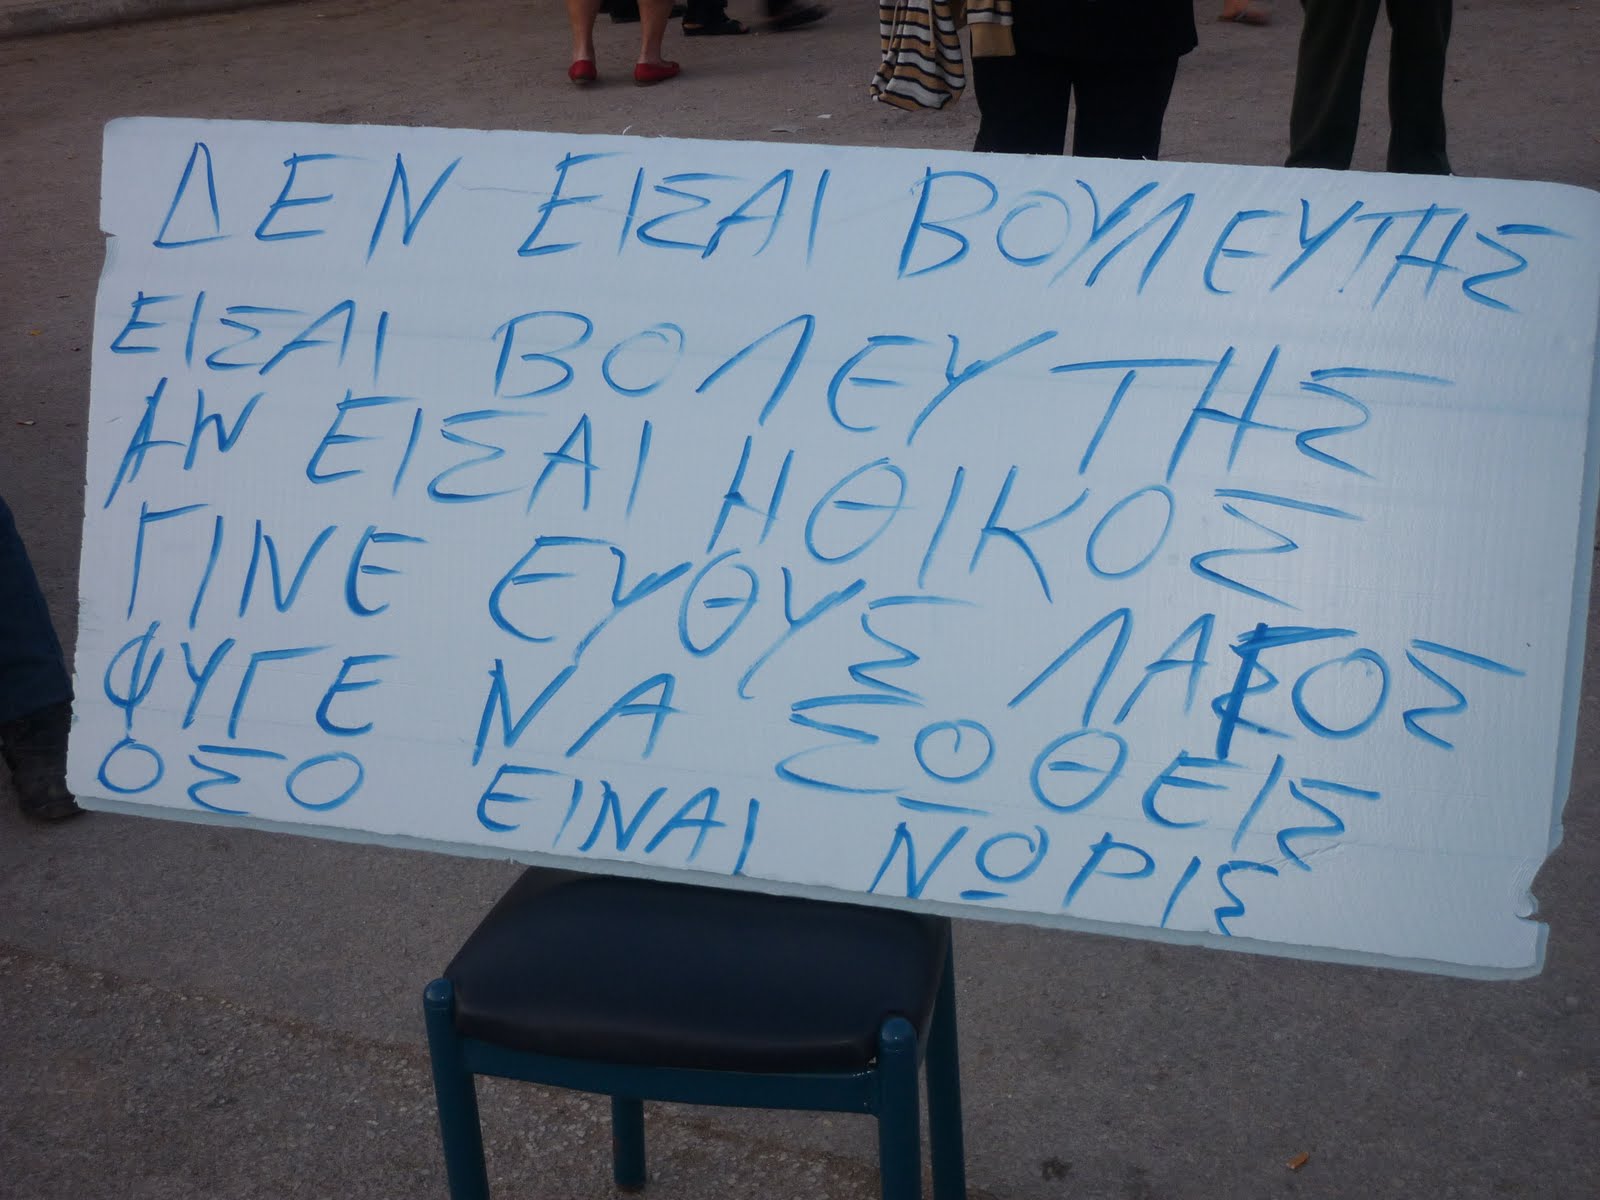 ΔΕΝ ΕΙΣΑΙ ΒΟΥΛΕΥΤΗΣ
ΕΙΣΑΙ ΒΟΛΕΥΤΗΣ
ΑΝ ΕΙΣΑΙ ΗΘΙΚΟΣ
ΓΙΝΕ ΕΥΘΥΣ ΛΑΟΣ
ΦΥΓΕ ΝΑ ΣΩΘΕΙΣ
ΟΣΟ ΕΙΝΑΙ ΝΩΡΙΣ